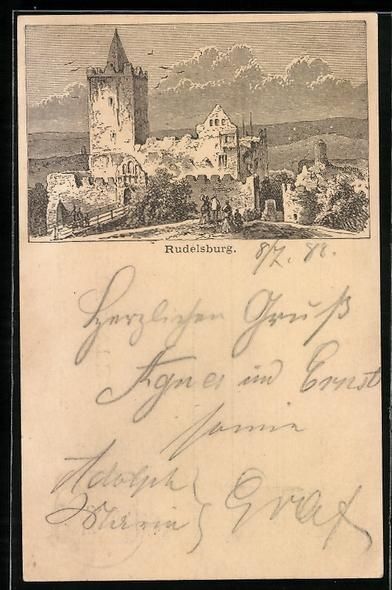 Rudelsburg.
8/7. 88.
Herzlichen Gruß
Agnes und Ernst
sowie
Adolph
Maria } Graf